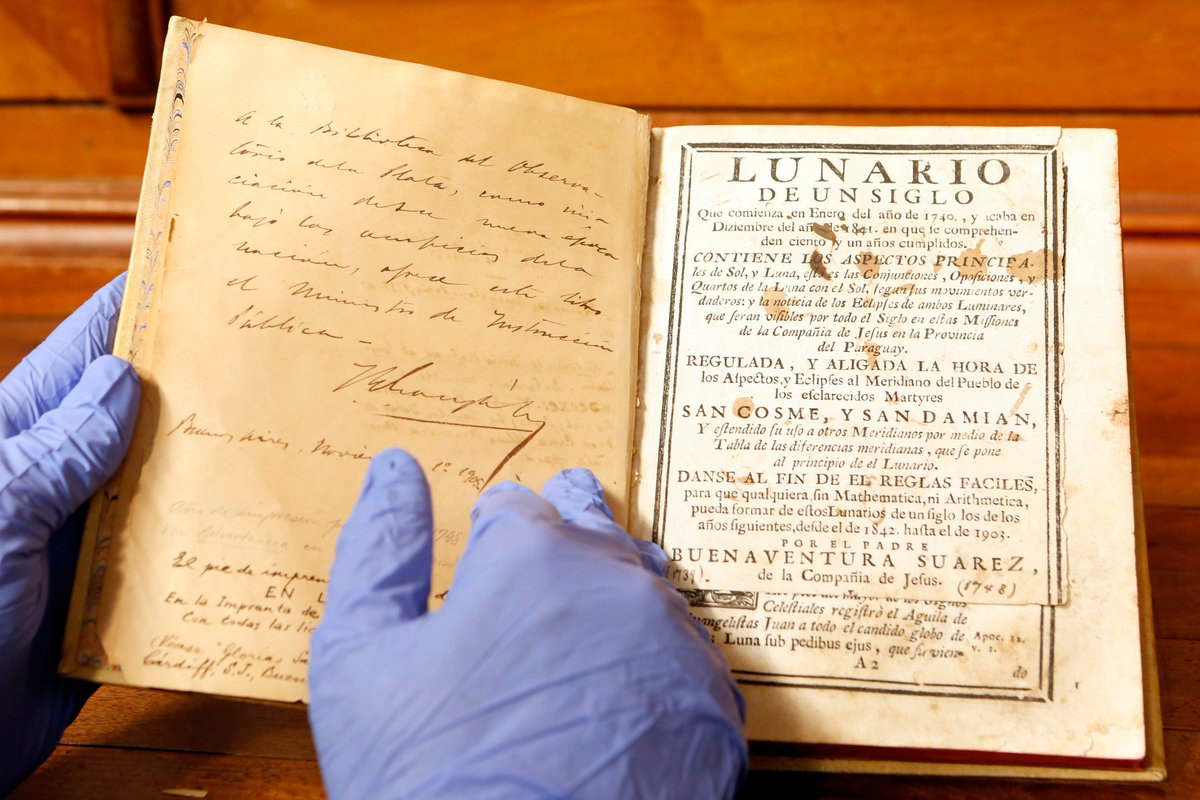 A la Biblioteca del Observa-
torio de la Plata, como ini-
ciación de su nueva época
bajo los auspicios de la
nación, ofrece este libro
el Ministro de Instrucción
Pública -
Buenos Aires, Novie 1º 1905
Año de impresión 1748
Ver Advertencia en
El pie de impren
EN L
En la Imprenta de
Con todas las lic
(Véase "Glorias
Cárdiff, S.J., Buen
LUNARIO
DE UN SIGLO
Que comienza en Enero del año de 1740., y acaba en
Diziembre del año de 1841. en que se comprehen-
den ciento y un años cumplidos.
CONTIENE LOS ASPECTOS PRINCIPA-
les de Sol, y Luna, esto es las Conjunciones, Oposiciones, y
Quartos de la Luna con el Sol, segun sus movimientos ver-
daderos: y la noticia de los Eclipses de ambos Luminares,
que seran visibles por todo el Siglo en estas Missiones
de la Compañia de Jesus en la Provincia
del Paraguay.
REGULADA, Y ALIGADA LA HORA DE
los Aspectos, y Eclipses al Meridiano del Pueblo de
los esclarecidos Martyres
SAN COSME, Y SAN DAMIAN,
Y estendido su uso a otros Meridianos por medio de la
Tabla de las diferencias meridianas, que se pone
al principio de el Lunario.
DANSE AL FIN DE EL REGLAS FACILES,
para que qualquiera, sin Mathematica, ni Arithmetica,
pueda formar de estos Lunarios de un siglo los de los
años siguientes, desde el de 1842. hasta el de 1903.
POR EL PADRE
BUENAVENTURA SUAREZ,
(1739). de la Compañia de Jesus. (1748)
Celestiales registrò el Aguila de
vangelistas Juan a todo el candido globo de Apoc. 12.
: Luna sub pedibus ejus, que su vien- v. 1.
A 2 do